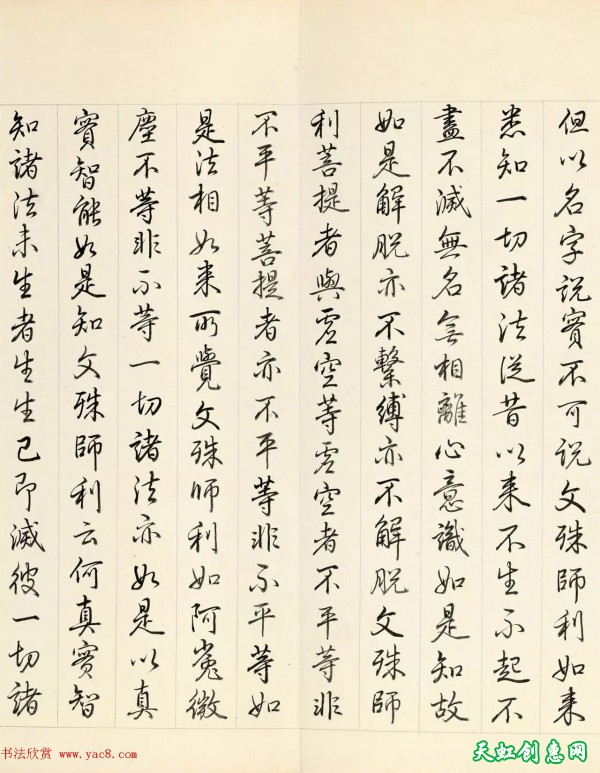 但以名字說實不可説文殊師利如来
悉知一切諸法從昔以来不生不起不
盡不滅無名無相離心意識如是知故
如是解脱亦不繫縛亦不解脱文殊師
利菩提者與虛空等虛空者不平等非
不平等菩提者亦不平等非不平等如
是法相如来所覺文殊师利如阿㝹微
塵不等非不等一切諸法亦如是以真
實智能如是知文殊師利云何真實智
知諸法未生者生生已即滅彼一切諸
书法欣赏 www.yac8.com
天虹创惠网